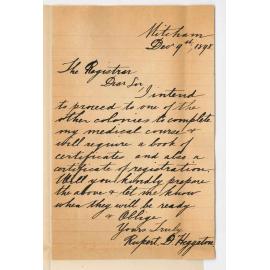 Mitcham
Dec 9th, 1898
The Registrar
Dear Sir,
I intend
to proceed to one of the
other colonies to complete
my medical course &
will require a book of
certificates and also a
certificate of registration.
Will you kindly prepare
the above & let me know
when they will be ready
& Oblige
Yours truly
Rupert D. Heggaton